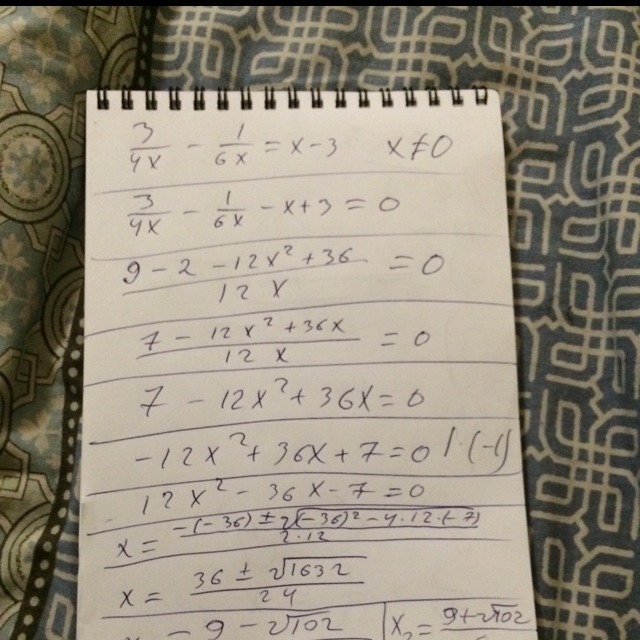 3/4x - 1/6x = x - 3   x ≠ 0
3/4x - 1/6x - x + 3 = 0
9 - 2 - 12x² + 36 / 12x = 0
7 - 12x² + 36x / 12x = 0
7 - 12x² + 36x = 0
-12x² + 36x + 7 = 0 | · (-1)
12x² - 36x - 7 = 0
x = -(-36) ± √(-36)² - 4·12·(-7) / 2·12
x = 36 ± √1632 / 24
= 9 - √102 | x₂ = 9 + √102